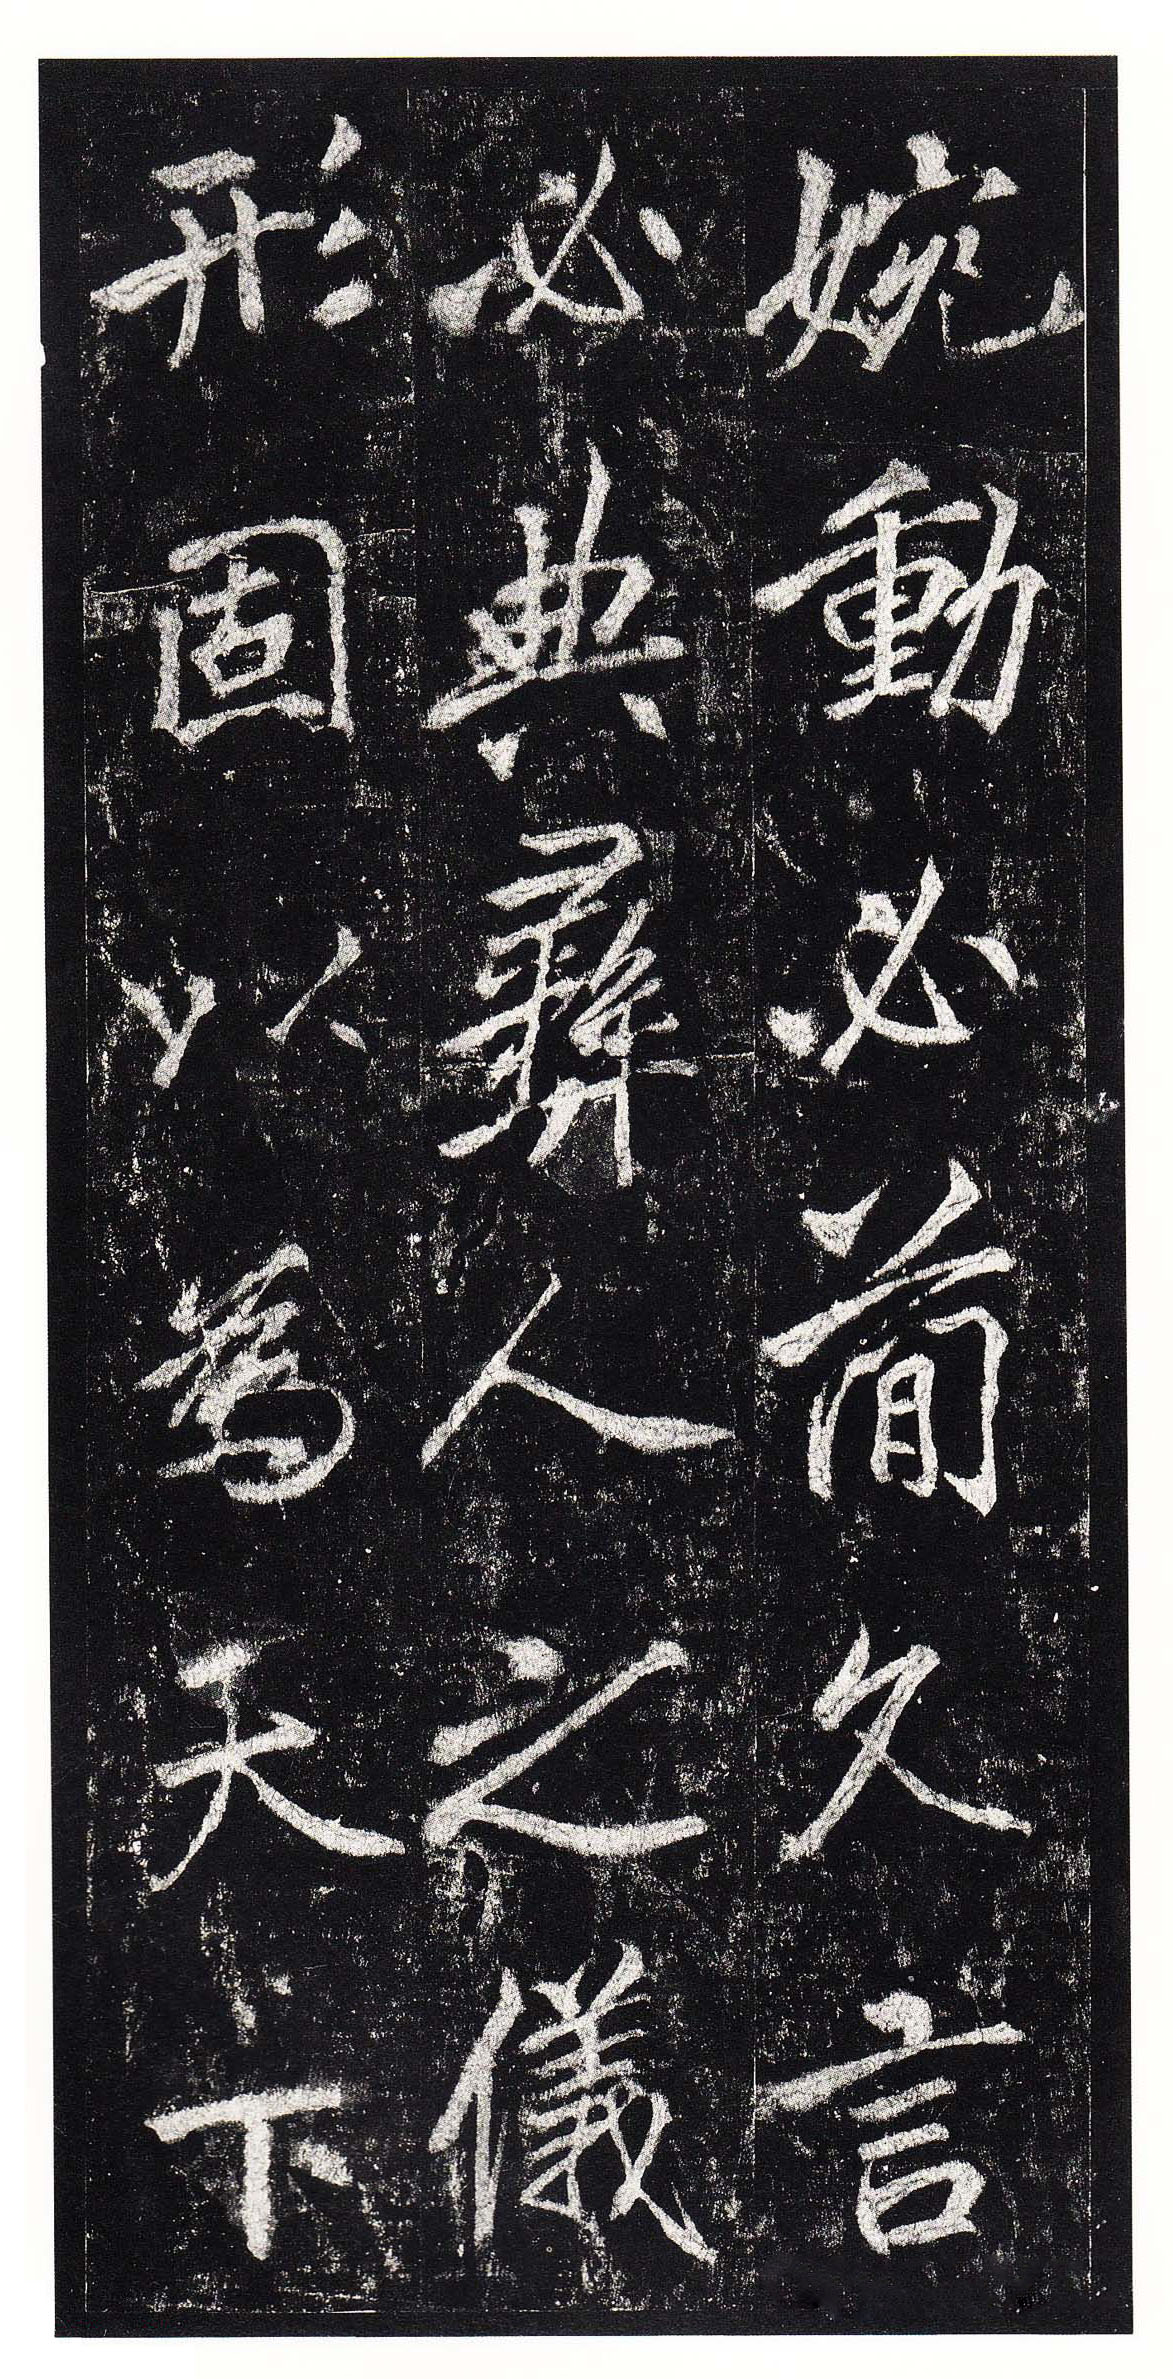 婉動必簡久言
必典彝人之儀
形固以為天下